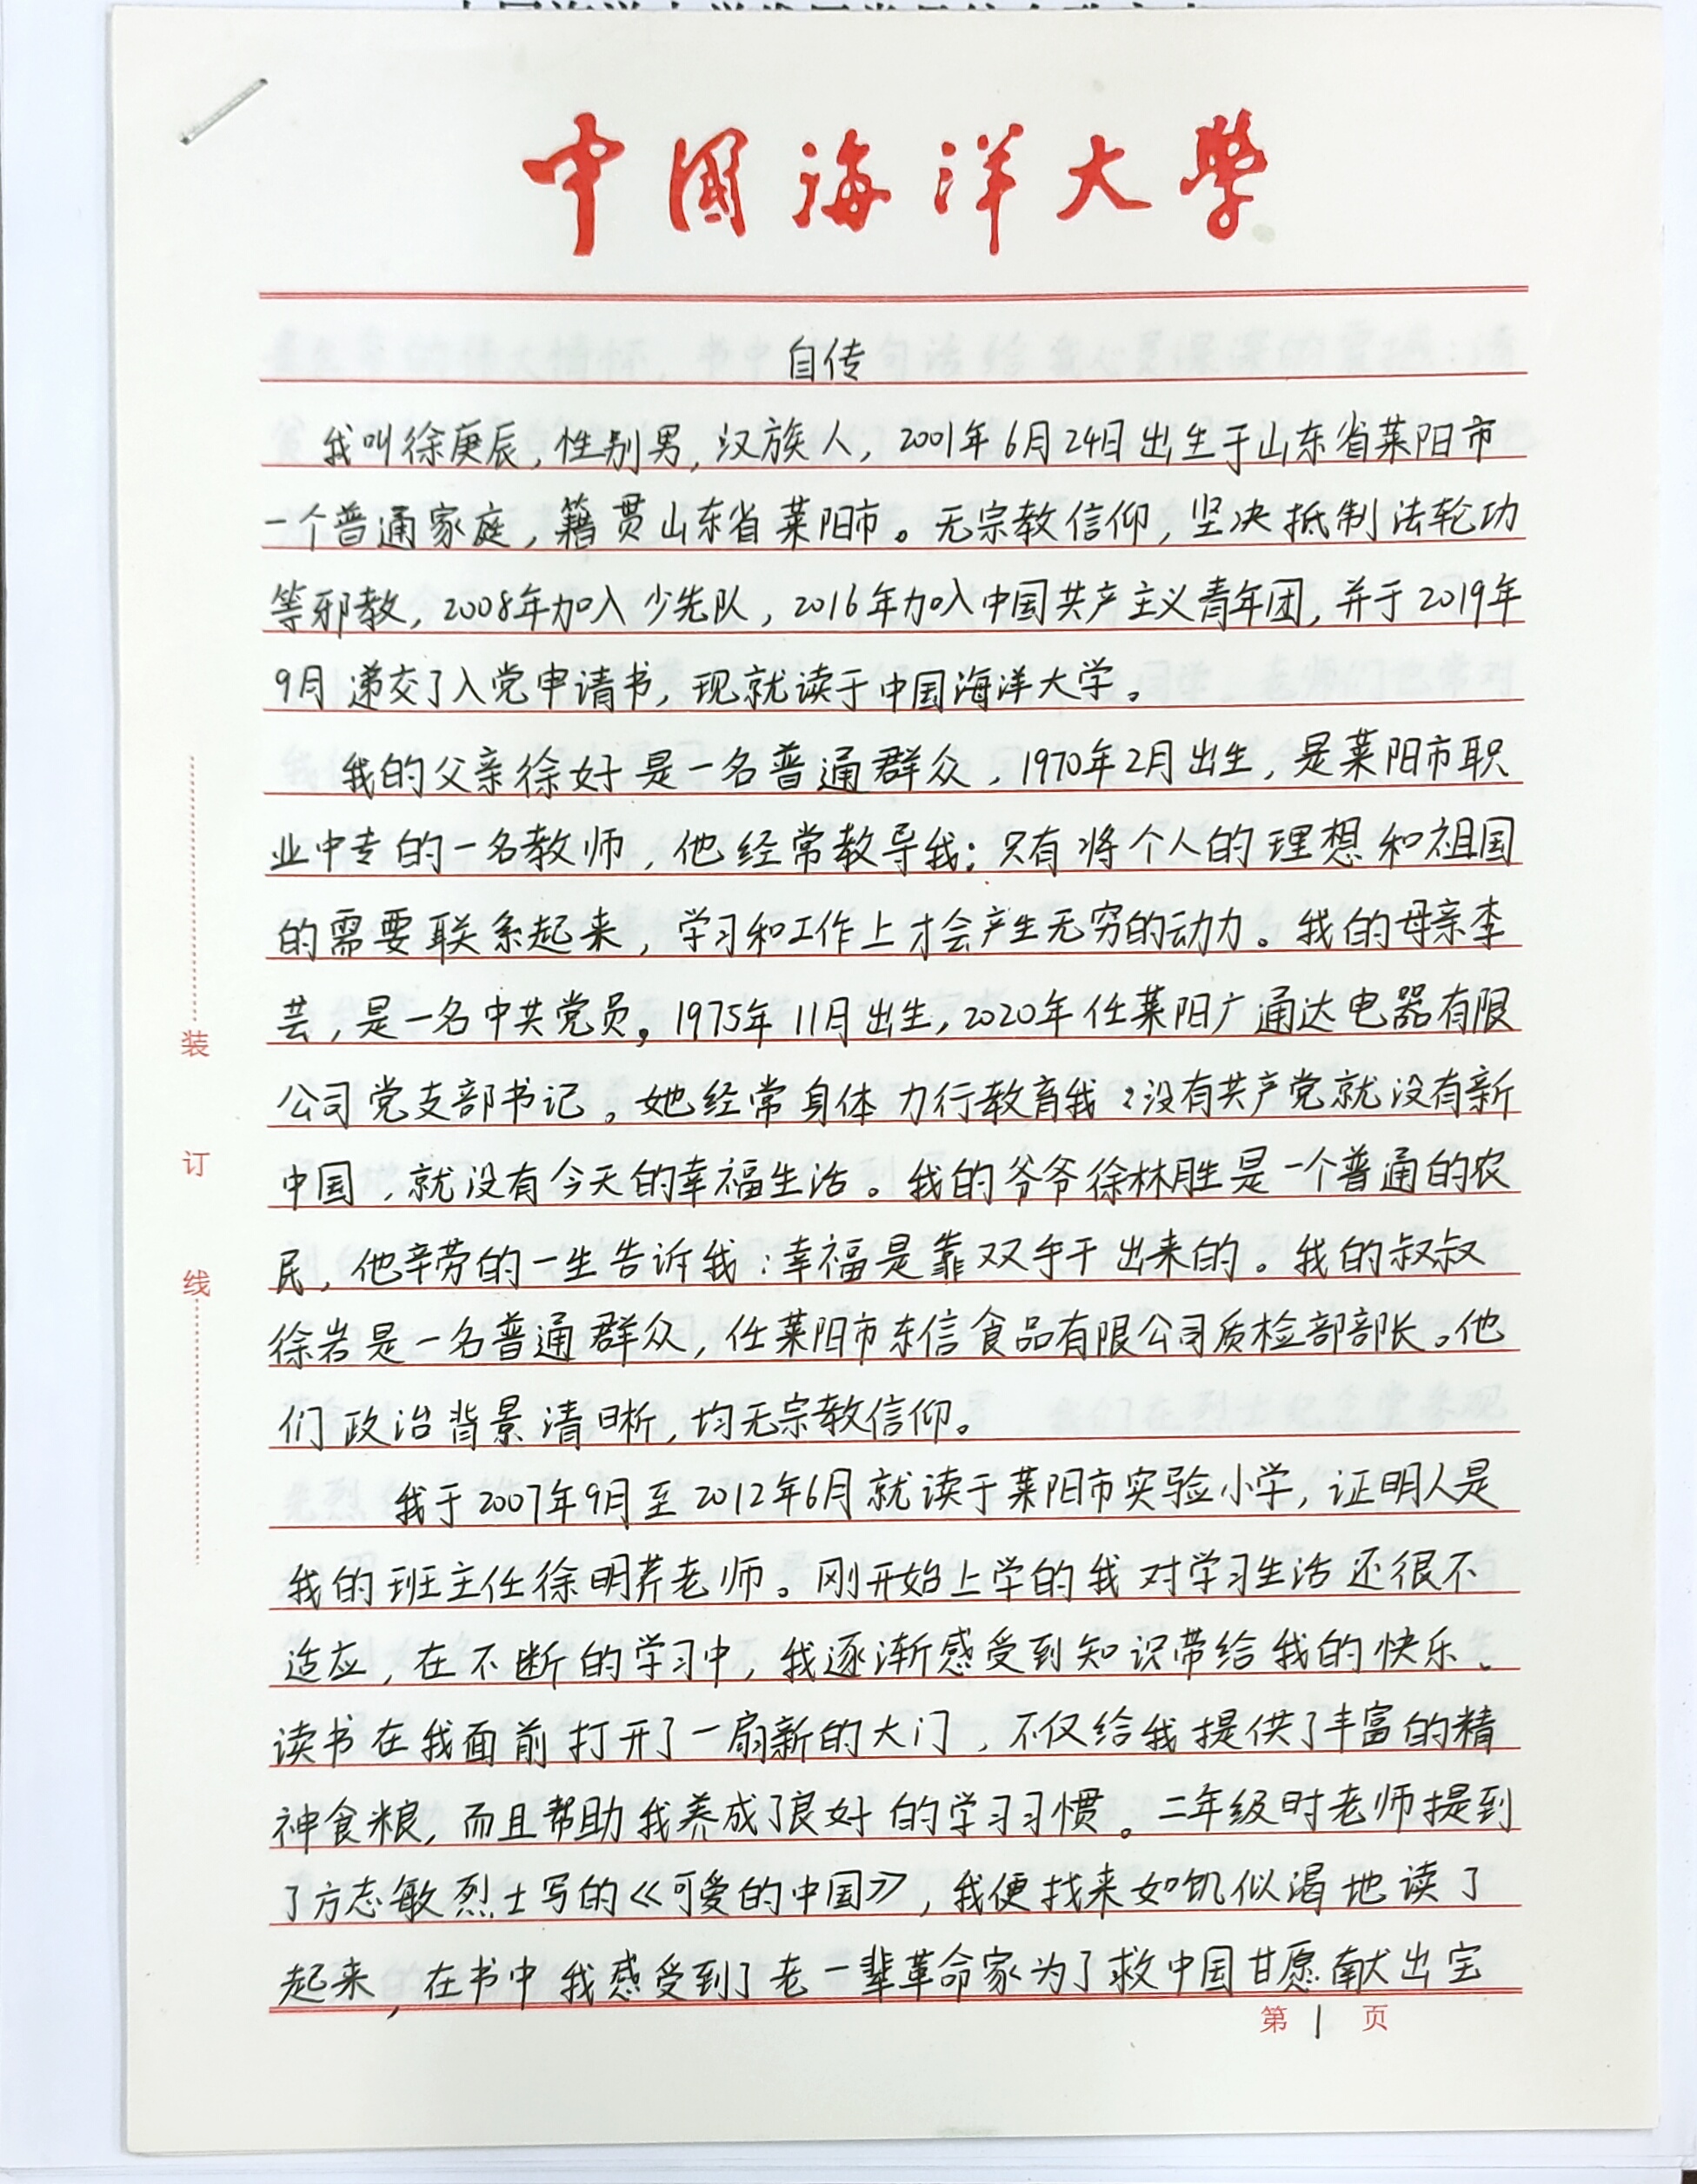 中国海洋大学
自传
我叫徐庚辰,性别男,汉族人,2001年6月24日出生于山东省莱阳市
一个普通家庭,籍贯山东省莱阳市。无宗教信仰,坚决抵制法轮功
等邪教,2008年加入少先队,2016年加入中国共产主义青年团,并于2019年
9月递交了入党申请书,现就读于中国海洋大学。
我的父亲徐好是一名普通群众,1970年2月出生,是莱阳市职
业中专的一名教师,他经常教导我:只有将个人的理想和祖国
的需要联系起来,学习和工作上才会产生无穷的动力。我的母亲李
芸,是一名中共党员,1975年11月出生,2020年任莱阳广通达电器有限
公司党支部书记。她经常身体力行教育我:没有共产党就没有新
中国,就没有今天的幸福生活。我的爷爷徐林胜是一个普通的农
民,他辛劳的一生告诉我:幸福是靠双手干出来的。我的叔叔
徐岩是一名普通群众,任莱阳市东信食品有限公司质检部部长。他
们政治背景清晰,均无宗教信仰。
我于2007年9月至2012年6月就读于莱阳市实验小学,证明人是
我的班主任徐明荞老师。刚开始上学的我对学习生活还很不
适应,在不断的学习中,我逐渐感受到知识带给我的快乐、
读书在我面前打开了一扇新的大门,不仅给我提供了丰富的精
神食粮,而且帮助我养成了良好的学习习惯。二年级时老师提到
了方志敏烈士写的《可爱的中国》,我便找来如饥似渴地读了
起来,在书中我感受到了老一辈革命家为了救中国甘愿献出宝
装
订
线
第1页